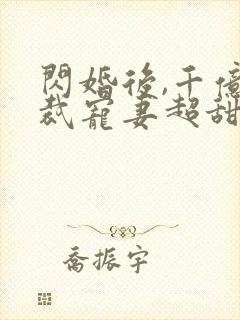 閃婚後,千億
裁寵妻超甜
喬振宇